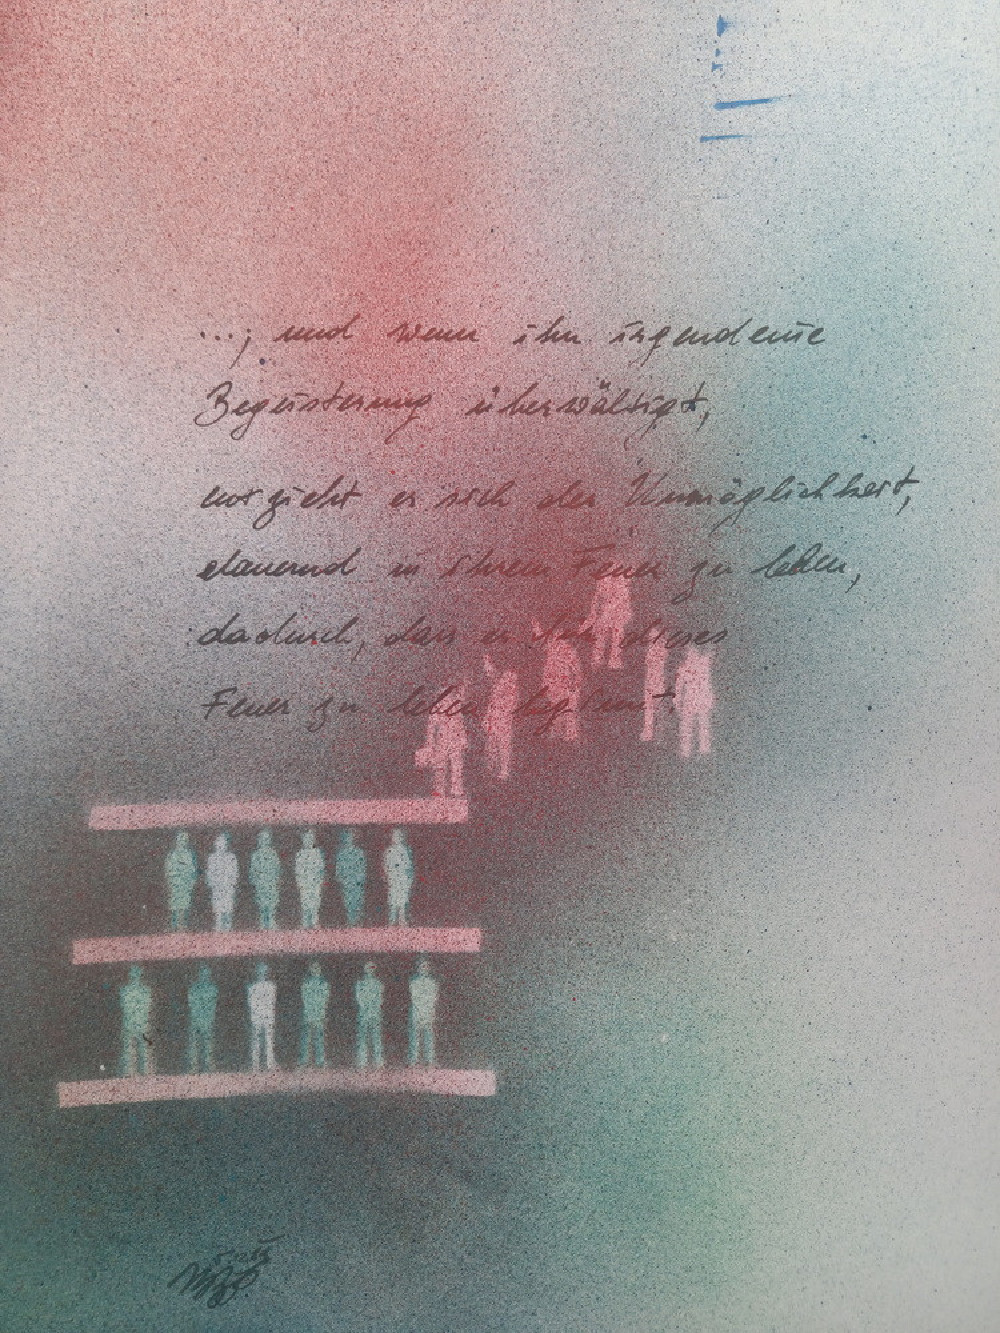 ...; und wenn ihn irgendeine
Begeisterung überwältigt,
entzieht er sich der Unmöglichkeit,
dauernd in ihrem Feuer zu leben,
dadurch, dass er für dieses
Feuer zu leben beginnt.